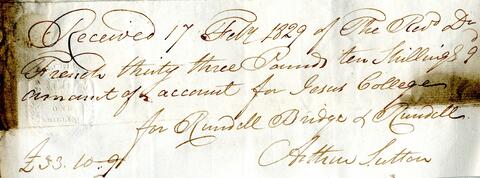 Received 17 Feby 1829 of The Revd Dr
French thirty three Pounds ten Shillings & 9d
amount of account for Jesus College
for Rundell Bridge & Rundell
Arthur Sutton
£33.10.9